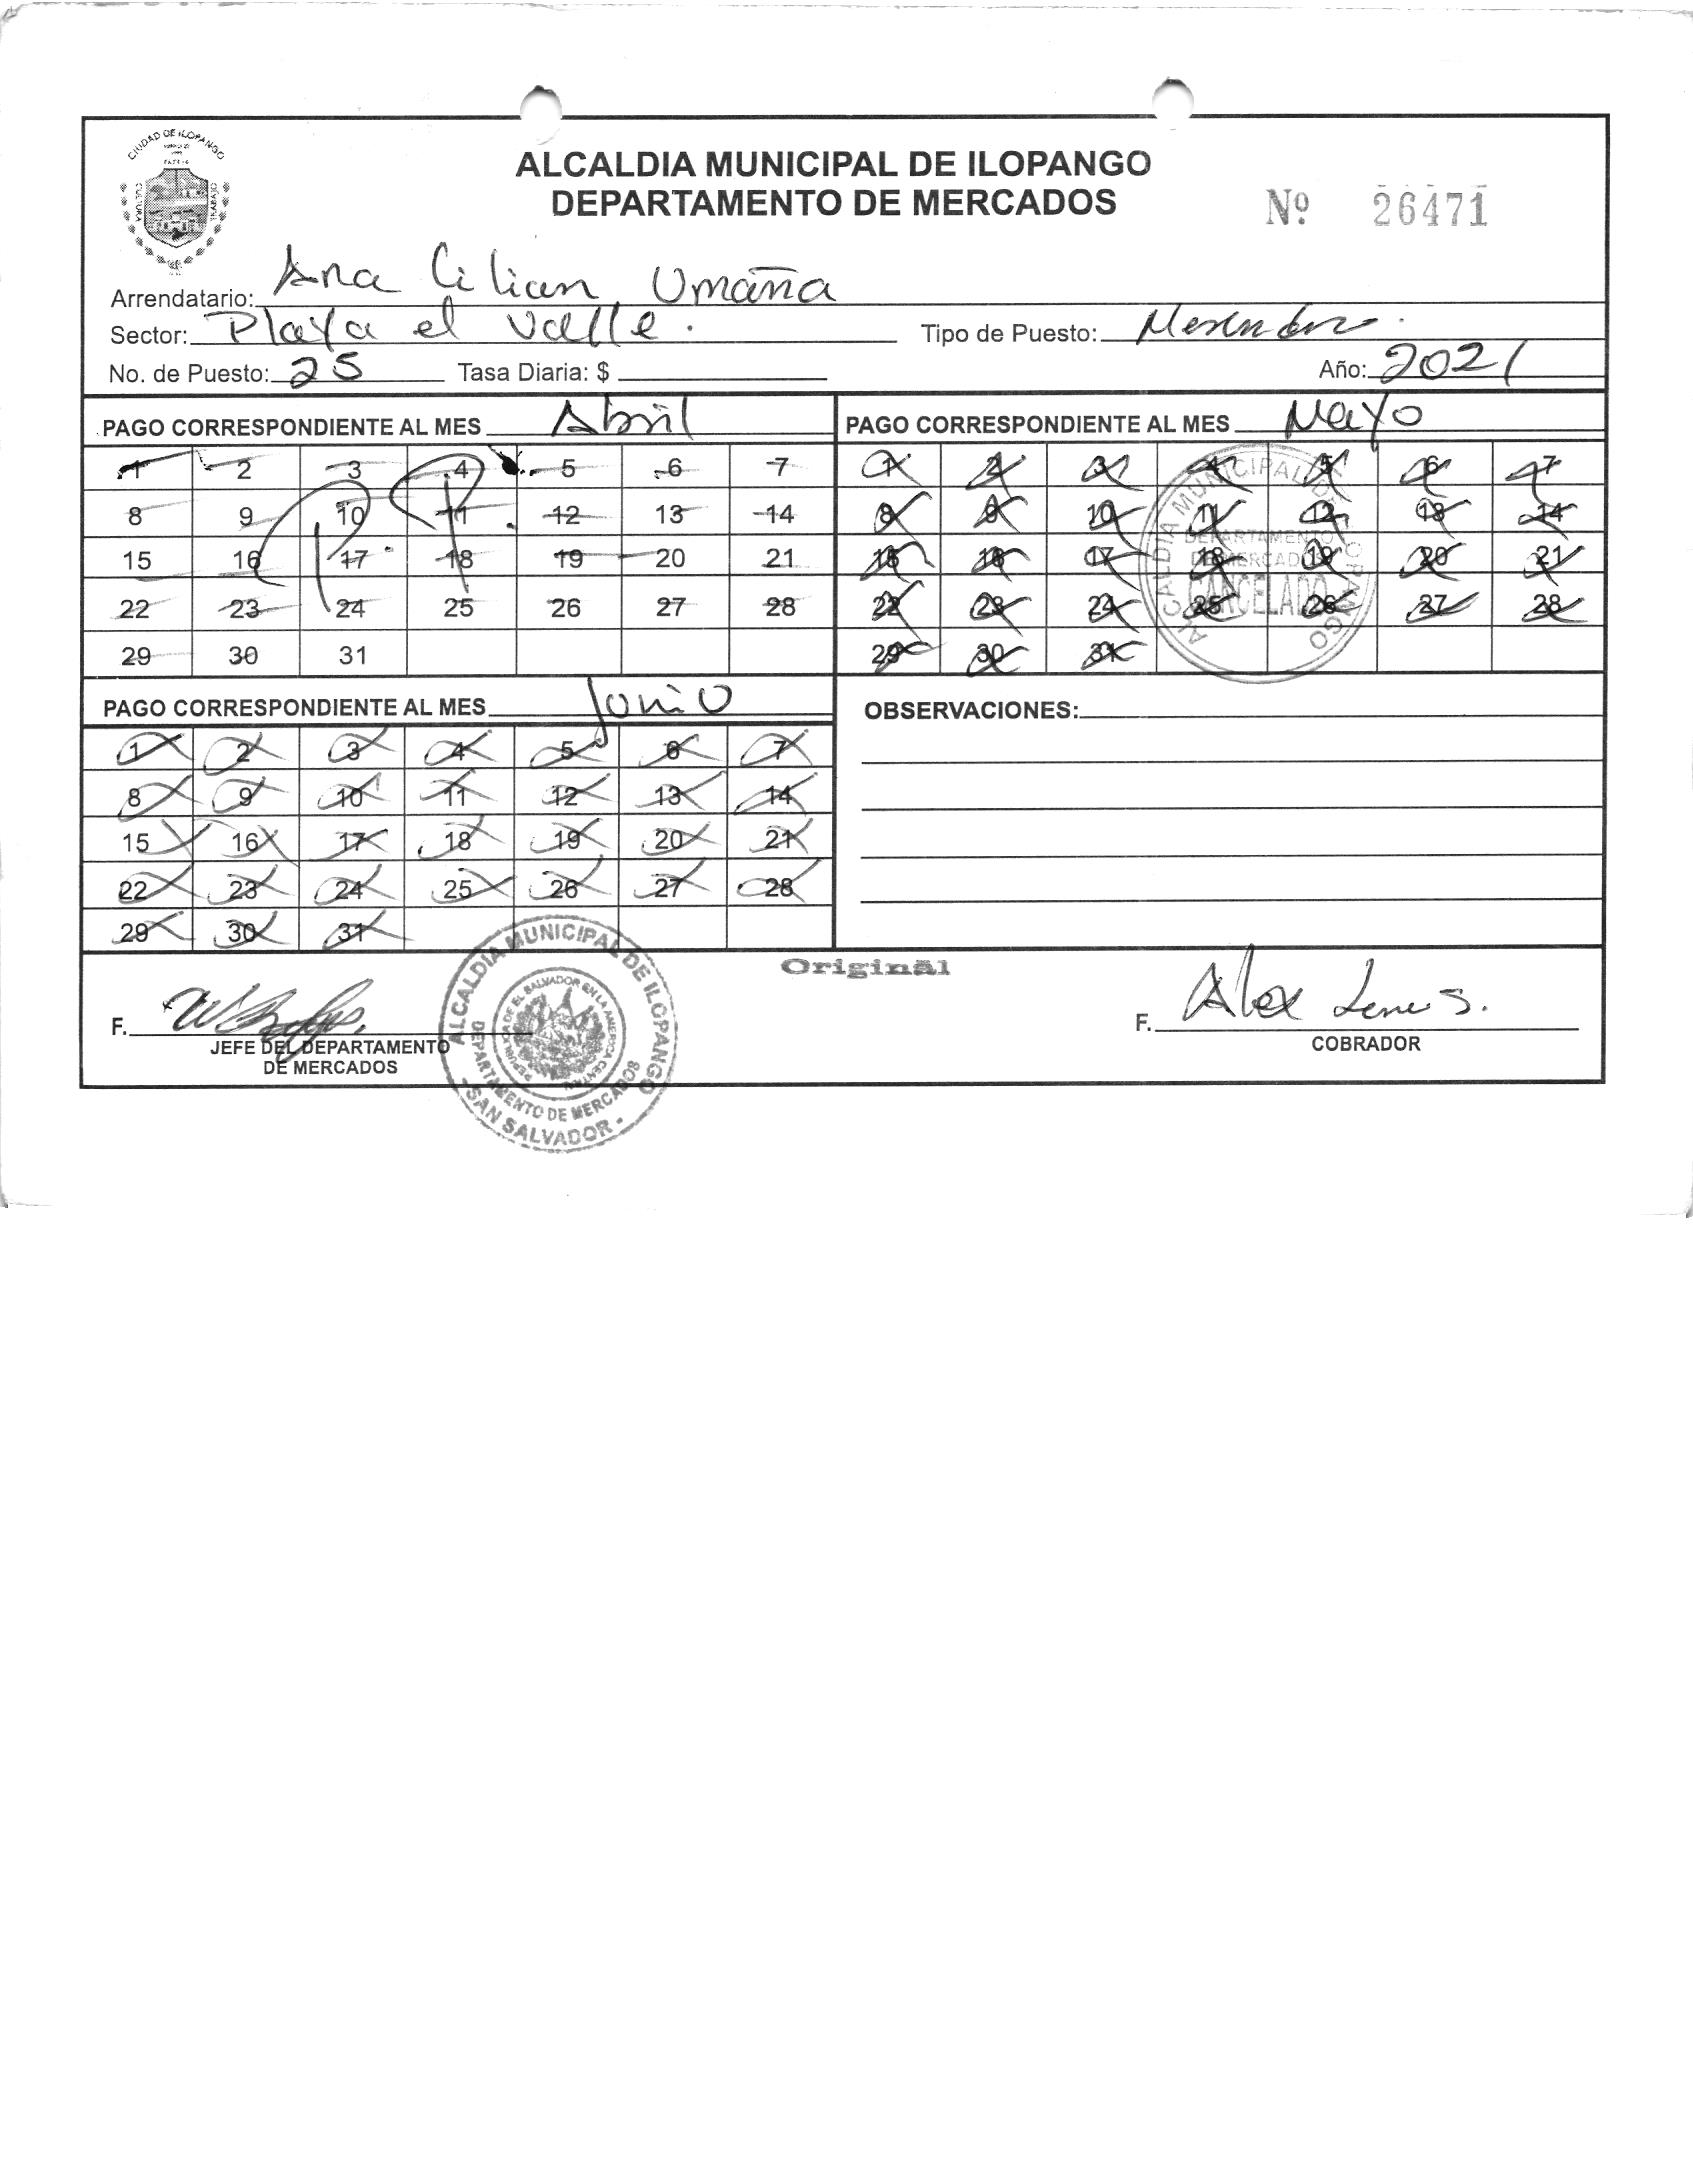 CIUDAD DE ILOPANGO
CULTURA
TRABAJO
ALCALDIA MUNICIPAL DE ILOPANGO
DEPARTAMENTO DE MERCADOS
Nº 26471
Arrendatario: Ana Lilian Umaña
Sector: Playa el Valle. Tipo de Puesto:
No. de Puesto: 25 Tasa Diaria: $ Año: 2021
PAGO CORRESPONDIENTE AL MES Abril
1 2 3 4 5 6 7
8 9 10 11 12 13 14
15 16 17 18 19 20 21
22 23 24 25 26 27 28
29 30 31
P.P.
PAGO CORRESPONDIENTE AL MES Mayo
1 2 3 4 5 6 7
8 9 10 11 12 13 14
15 16 17 18 19 20 21
22 23 24 25 26 27 28
29 30 31
ALCALDIA MUNICIPAL DE ILOPANGO
DEPARTAMENTO
DE MERCADOS
CANCELADO
PAGO CORRESPONDIENTE AL MES Junio
1 2 3 4 5 6 7
8 9 10 11 12 13 14
15 16 17 18 19 20 21
22 23 24 25 26 27 28
29 30 31
OBSERVACIONES:
Original
F.
JEFE DEL DEPARTAMENTO
DE MERCADOS
ALCALDIA MUNICIPAL DE ILOPANGO
DEPARTAMENTO DE MERCADOS
REPUBLICA DE EL SALVADOR EN LA AMERICA CENTRAL
- SAN SALVADOR -
F. Alex
COBRADOR